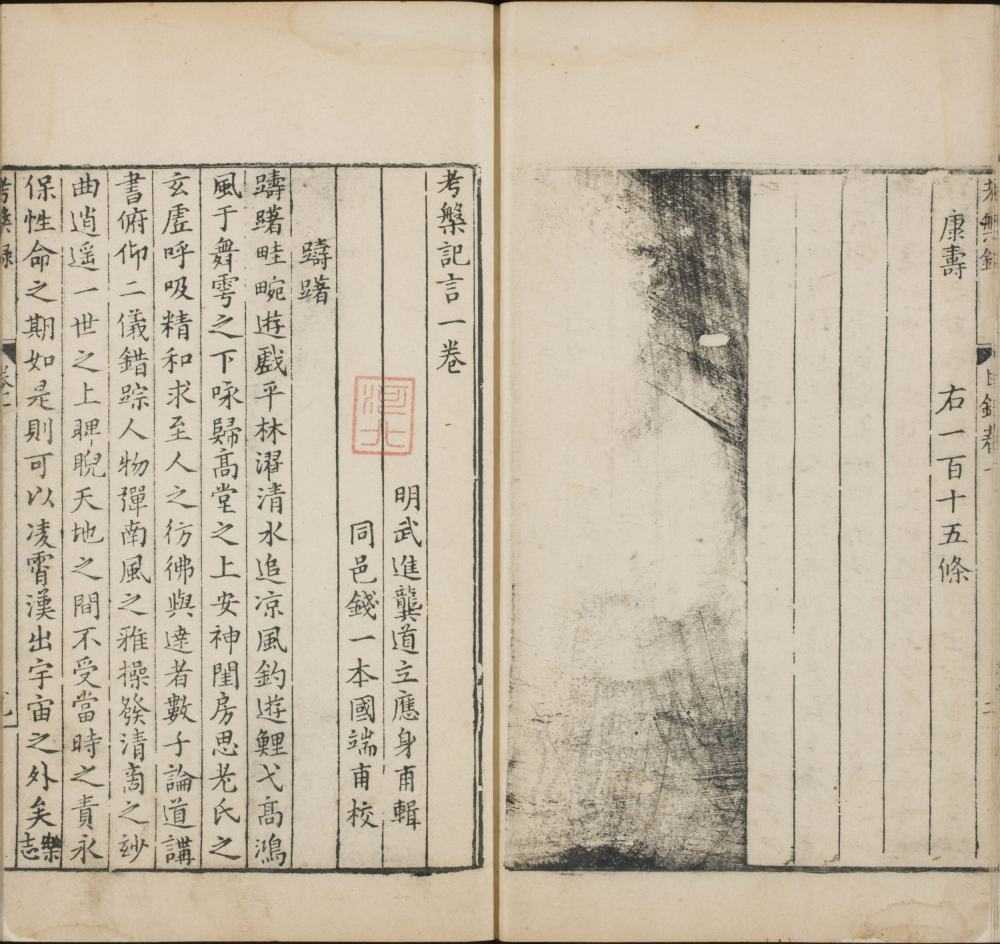 康壽
右一百十五條
考槃記言一卷
明武進龔道立應身甫輯
同邑錢一本國端甫校
躊躇
躊躇畦畹遊戲平林濯清水追凉風釣遊鯉弋髙鴻
風于舞雩之下咏歸髙堂之上安神閨房思老氏之
玄虛呼吸精和求至人之彷彿與達者數子論道講
書俯仰二儀錯踪人物彈南風之雅操發清商之玅
曲逍遥一世之上睥睨天地之間不受當時之責永
保性命之期如是則可以凌霄漢出宇宙之外矣樂志